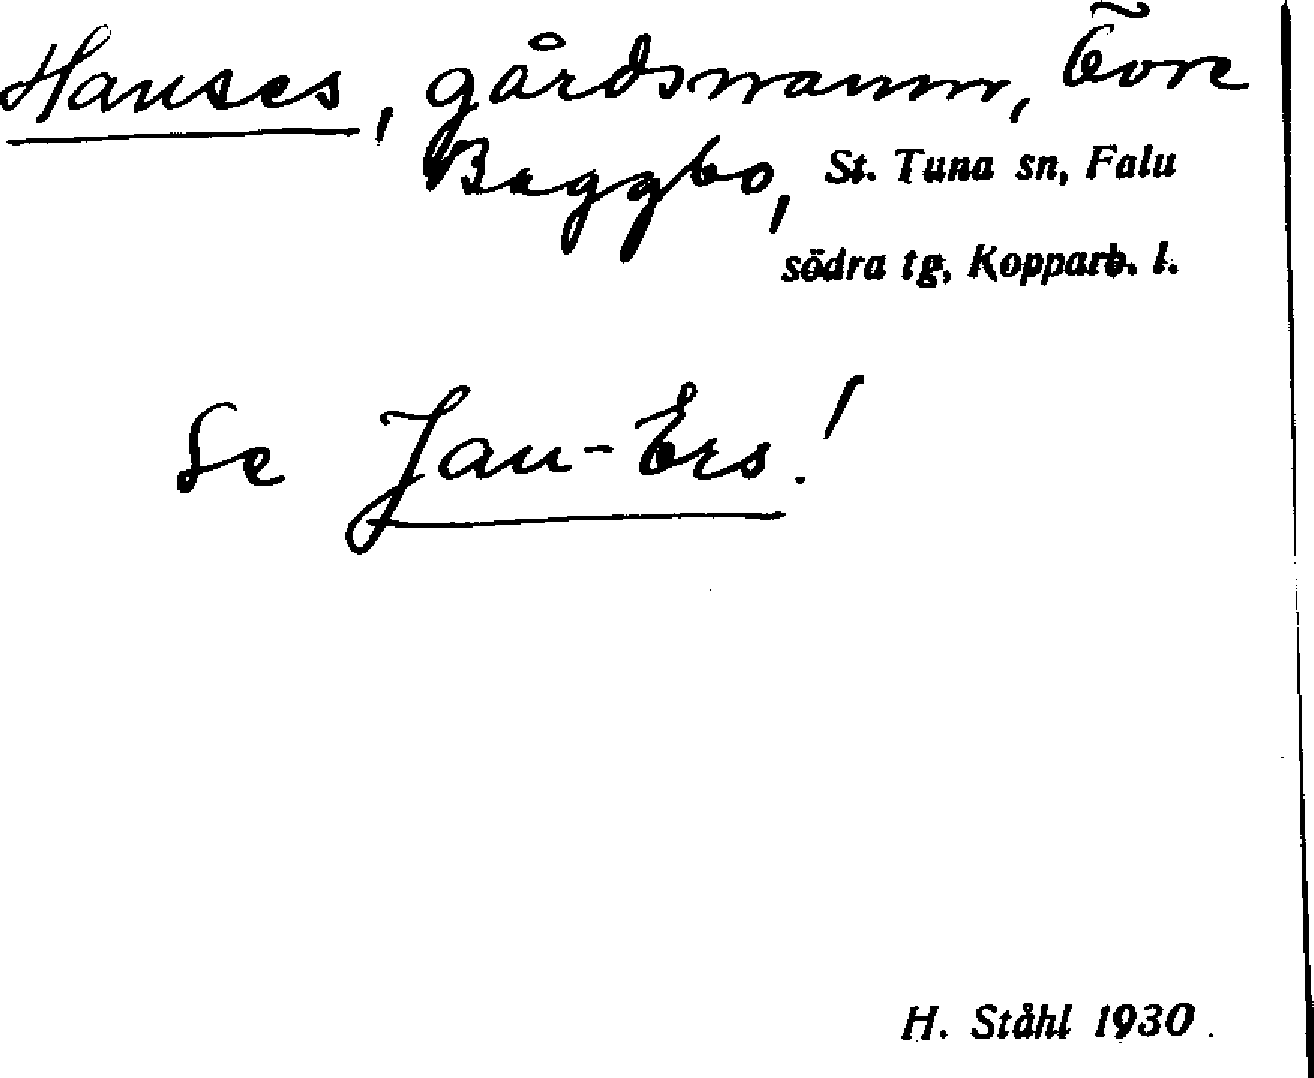 Hanses, gårdsnamn, Övre
Baggbo, St. Tuna sn, Falu
södra tg, Kopparb. l.
Se Jan-Ers!
H. Ståhl 1930.